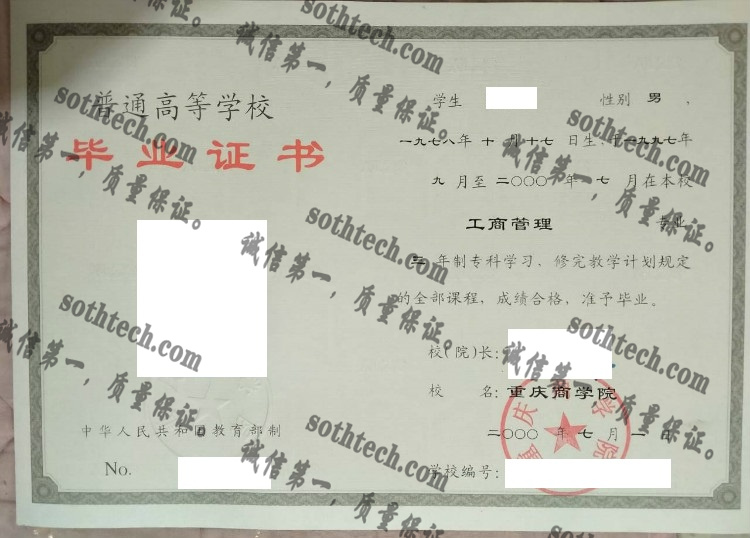 普通高等学校
毕业证书
中华人民共和国教育部制
No.
学生 性别 男 ，
一九七八年 十 月十七 日生，于一九九七年
九 月至 二〇〇〇 年 七 月在本校
工商管理 专业
三 年制专科学习，修完教学计划规定
的全部课程，成绩合格，准予毕业。
校(院)长:
校 名: 重庆商学院
二〇〇〇 年 七 月 一 日
学校编号:
重庆商学院
sothtech.com
诚信第一，质量保证。
sothtech.com
诚信第一，质量保证。
sothtech.com
诚信第一，质量保证。
sothtech.com
诚信第一，质量保证。
sothtech.com
诚信第一，质量保证。
sothtech.com
诚信第一，质量保证。
sothtech.com
诚信第一，质量保证。